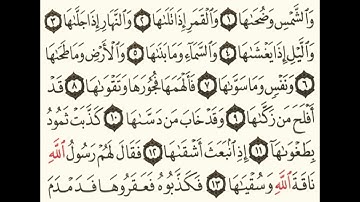 وَالشَّمْسِ وَضُحَىٰهَا ۝١ وَالْقَمَرِ إِذَا تَلَىٰهَا ۝٢ وَالنَّهَارِ إِذَا جَلَّىٰهَا ۝٣
وَالَّيْلِ إِذَا يَغْشَىٰهَا ۝٤ وَالسَّمَآءِ وَمَا بَنَىٰهَا ۝٥ وَالْأَرْضِ وَمَا طَحَىٰهَا
۝٦ وَنَفْسٍ وَمَا سَوَّىٰهَا ۝٧ فَأَلْهَمَهَا فُجُورَهَا وَتَقْوَىٰهَا ۝٨ قَدْ
أَفْلَحَ مَن زَكَّىٰهَا ۝٩ وَقَدْ خَابَ مَن دَسَّىٰهَا ۝١٠ كَذَّبَتْ ثَمُودُ
بِطَغْوَىٰهَآ ۝١١ إِذِ انۢبَعَثَ أَشْقَىٰهَا ۝١٢ فَقَالَ لَهُمْ رَسُولُ اللَّهِ
نَاقَةَ اللَّهِ وَسُقْيَـٰهَا ۝١٣ فَكَذَّبُوهُ فَعَقَرُوهَا فَدَمْدَمَ